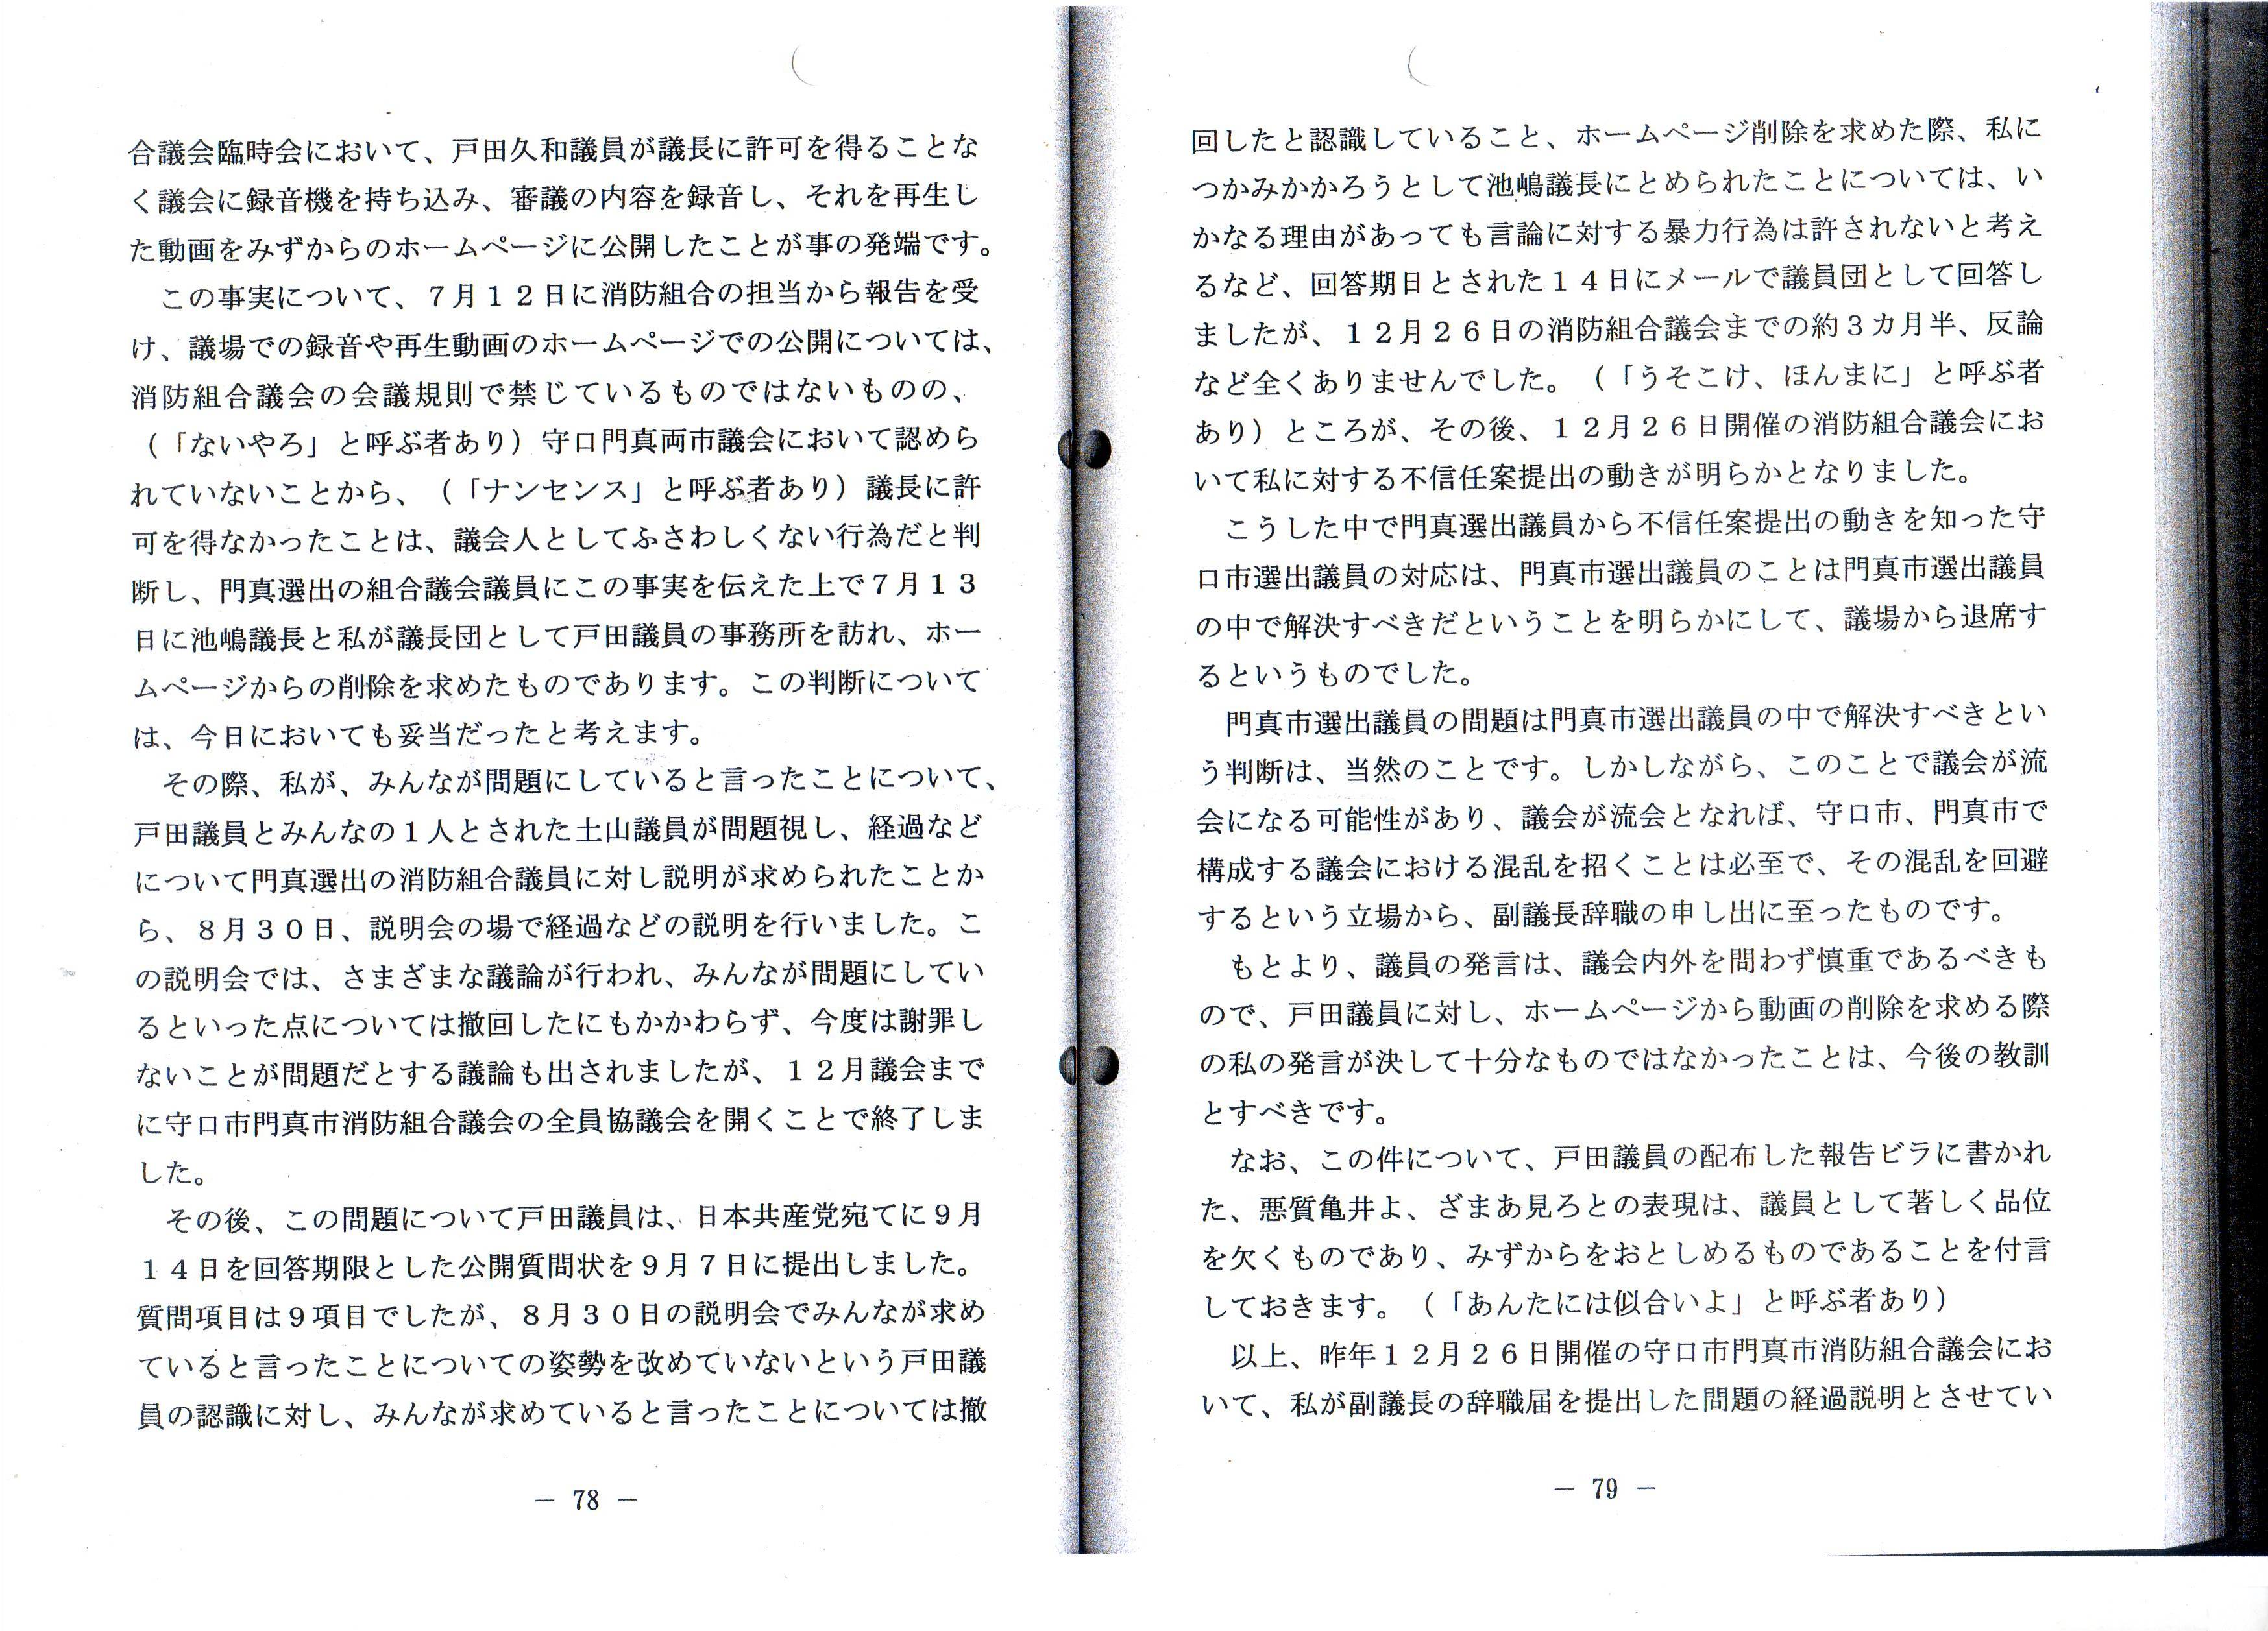 合議会臨時会において、戸田久和議員が議長に許可を得ることな
く議会に録音機を持ち込み、審議の内容を録音し、それを再生し
た動画をみずからのホームページに公開したことが事の発端です。
　この事実について、７月１２日に消防組合の担当から報告を受
け、議場での録音や再生動画のホームページでの公開については、
消防組合議会の会議規則で禁じているものではないものの、
（「ないやろ」と呼ぶ者あり）守口門真両市議会において認めら
れていないことから、（「ナンセンス」と呼ぶ者あり）議長に許
可を得なかったことは、議会人としてふさわしくない行為だと判
断し、門真選出の組合議会議員にこの事実を伝えた上で７月１３
日に池嶋議長と私が議長団として戸田議員の事務所を訪れ、ホー
ムページからの削除を求めたものであります。この判断について
は、今日においても妥当だったと考えます。
　その際、私が、みんなが問題にしていると言ったことについて、
戸田議員とみんなの１人とされた土山議員が問題視し、経過など
について門真選出の消防組合議員に対し説明が求められたことか
ら、８月３０日、説明会の場で経過などの説明を行いました。こ
の説明会では、さまざまな議論が行われ、みんなが問題にしてい
るといった点については撤回したにもかかわらず、今度は謝罪し
ないことが問題だとする議論も出されましたが、１２月議会まで
に守口市門真市消防組合議会の全員協議会を開くことで終了しま
した。
　その後、この問題について戸田議員は、日本共産党宛てに９月
１４日を回答期限とした公開質問状を９月７日に提出しました。
質問項目は９項目でしたが、８月３０日の説明会でみんなが求め
ていると言ったことについての姿勢を改めていないという戸田議
員の認識に対し、みんなが求めていると言ったことについては撤
― 78 ―
回したと認識していること、ホームページ削除を求めた際、私に
つかみかかろうとして池嶋議長にとめられたことについては、い
かなる理由があっても言論に対する暴力行為は許されないと考え
るなど、回答期日とされた１４日にメールで議員団として回答し
ましたが、１２月２６日の消防組合議会までの約３カ月半、反論
など全くありませんでした。（「うそこけ、ほんまに」と呼ぶ者
あり）ところが、その後、１２月２６日開催の消防組合議会にお
いて私に対する不信任案提出の動きが明らかとなりました。
　こうした中で門真選出議員から不信任案提出の動きを知った守
口市選出議員の対応は、門真市選出議員のことは門真市選出議員
の中で解決すべきだということを明らかにして、議場から退席す
るというものでした。
　門真市選出議員の問題は門真市選出議員の中で解決すべきとい
う判断は、当然のことです。しかしながら、このことで議会が流
会になる可能性があり、議会が流会となれば、守口市、門真市で
構成する議会における混乱を招くことは必至で、その混乱を回避
するという立場から、副議長辞職の申し出に至ったものです。
　もとより、議員の発言は、議会内外を問わず慎重であるべきも
ので、戸田議員に対し、ホームページから動画の削除を求める際
の私の発言が決して十分なものではなかったことは、今後の教訓
とすべきです。
　なお、この件について、戸田議員の配布した報告ビラに書かれ
た、悪質亀井よ、ざまあ見ろとの表現は、議員として著しく品位
を欠くものであり、みずからをおとしめるものであることを付言
しておきます。（「あんたには似合いよ」と呼ぶ者あり）
　以上、昨年１２月２６日開催の守口市門真市消防組合議会にお
いて、私が副議長の辞職届を提出した問題の経過説明とさせてい
― 79 ―